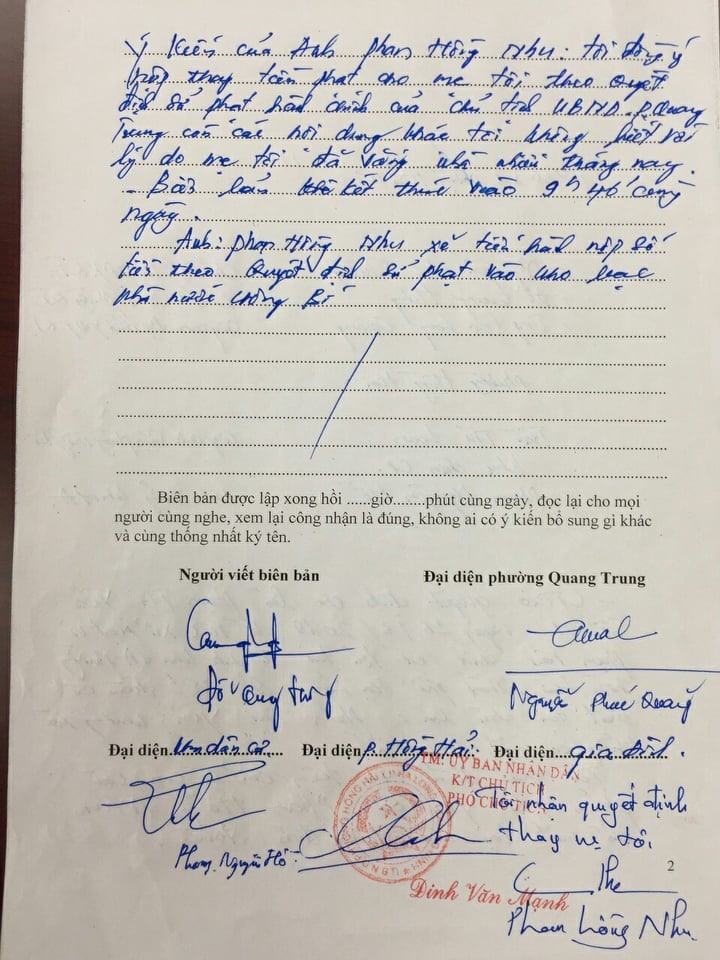 Ý kiến của Anh phan Hồng Như: tôi đồng ý
nộp thay tiền phạt cho mẹ tôi theo quyết
định xử phạt hành chính của chủ tịch UBND. P. Quang
Trung còn các nội dung khác tôi không biết với
lý do mẹ tôi đã vắng nhà tháng nay.
- Biên bản kết thúc vào 9h 46' cùng
ngày.
Anh: phan Hồng Như sẽ tiến hành nộp số
tiền theo Quyết định xử phạt vào kho bạc
nhà nước Uông Bí
Biên bản được lập xong hồi ......giờ........phút cùng ngày, đọc lại cho mọi
người cùng nghe, xem lại công nhận là đúng, không ai có ý kiến bổ sung gì khác
và cùng thống nhất ký tên.
Người viết biên bản Đại diện phường Quang Trung
Đỗ Quang Nguyễn Phúc Quang
Đại diện Đại diện P. Hồng Hải. Đại diện gia đình.
TM. ỦY BAN NHÂN DÂN
K/T CHỦ TỊCH
PHÓ CHỦ TỊCH
Tôi nhận quyết định
thay mẹ tôi
Nguyễn
2
Đinh Văn Mạnh
Phan Hồng Như